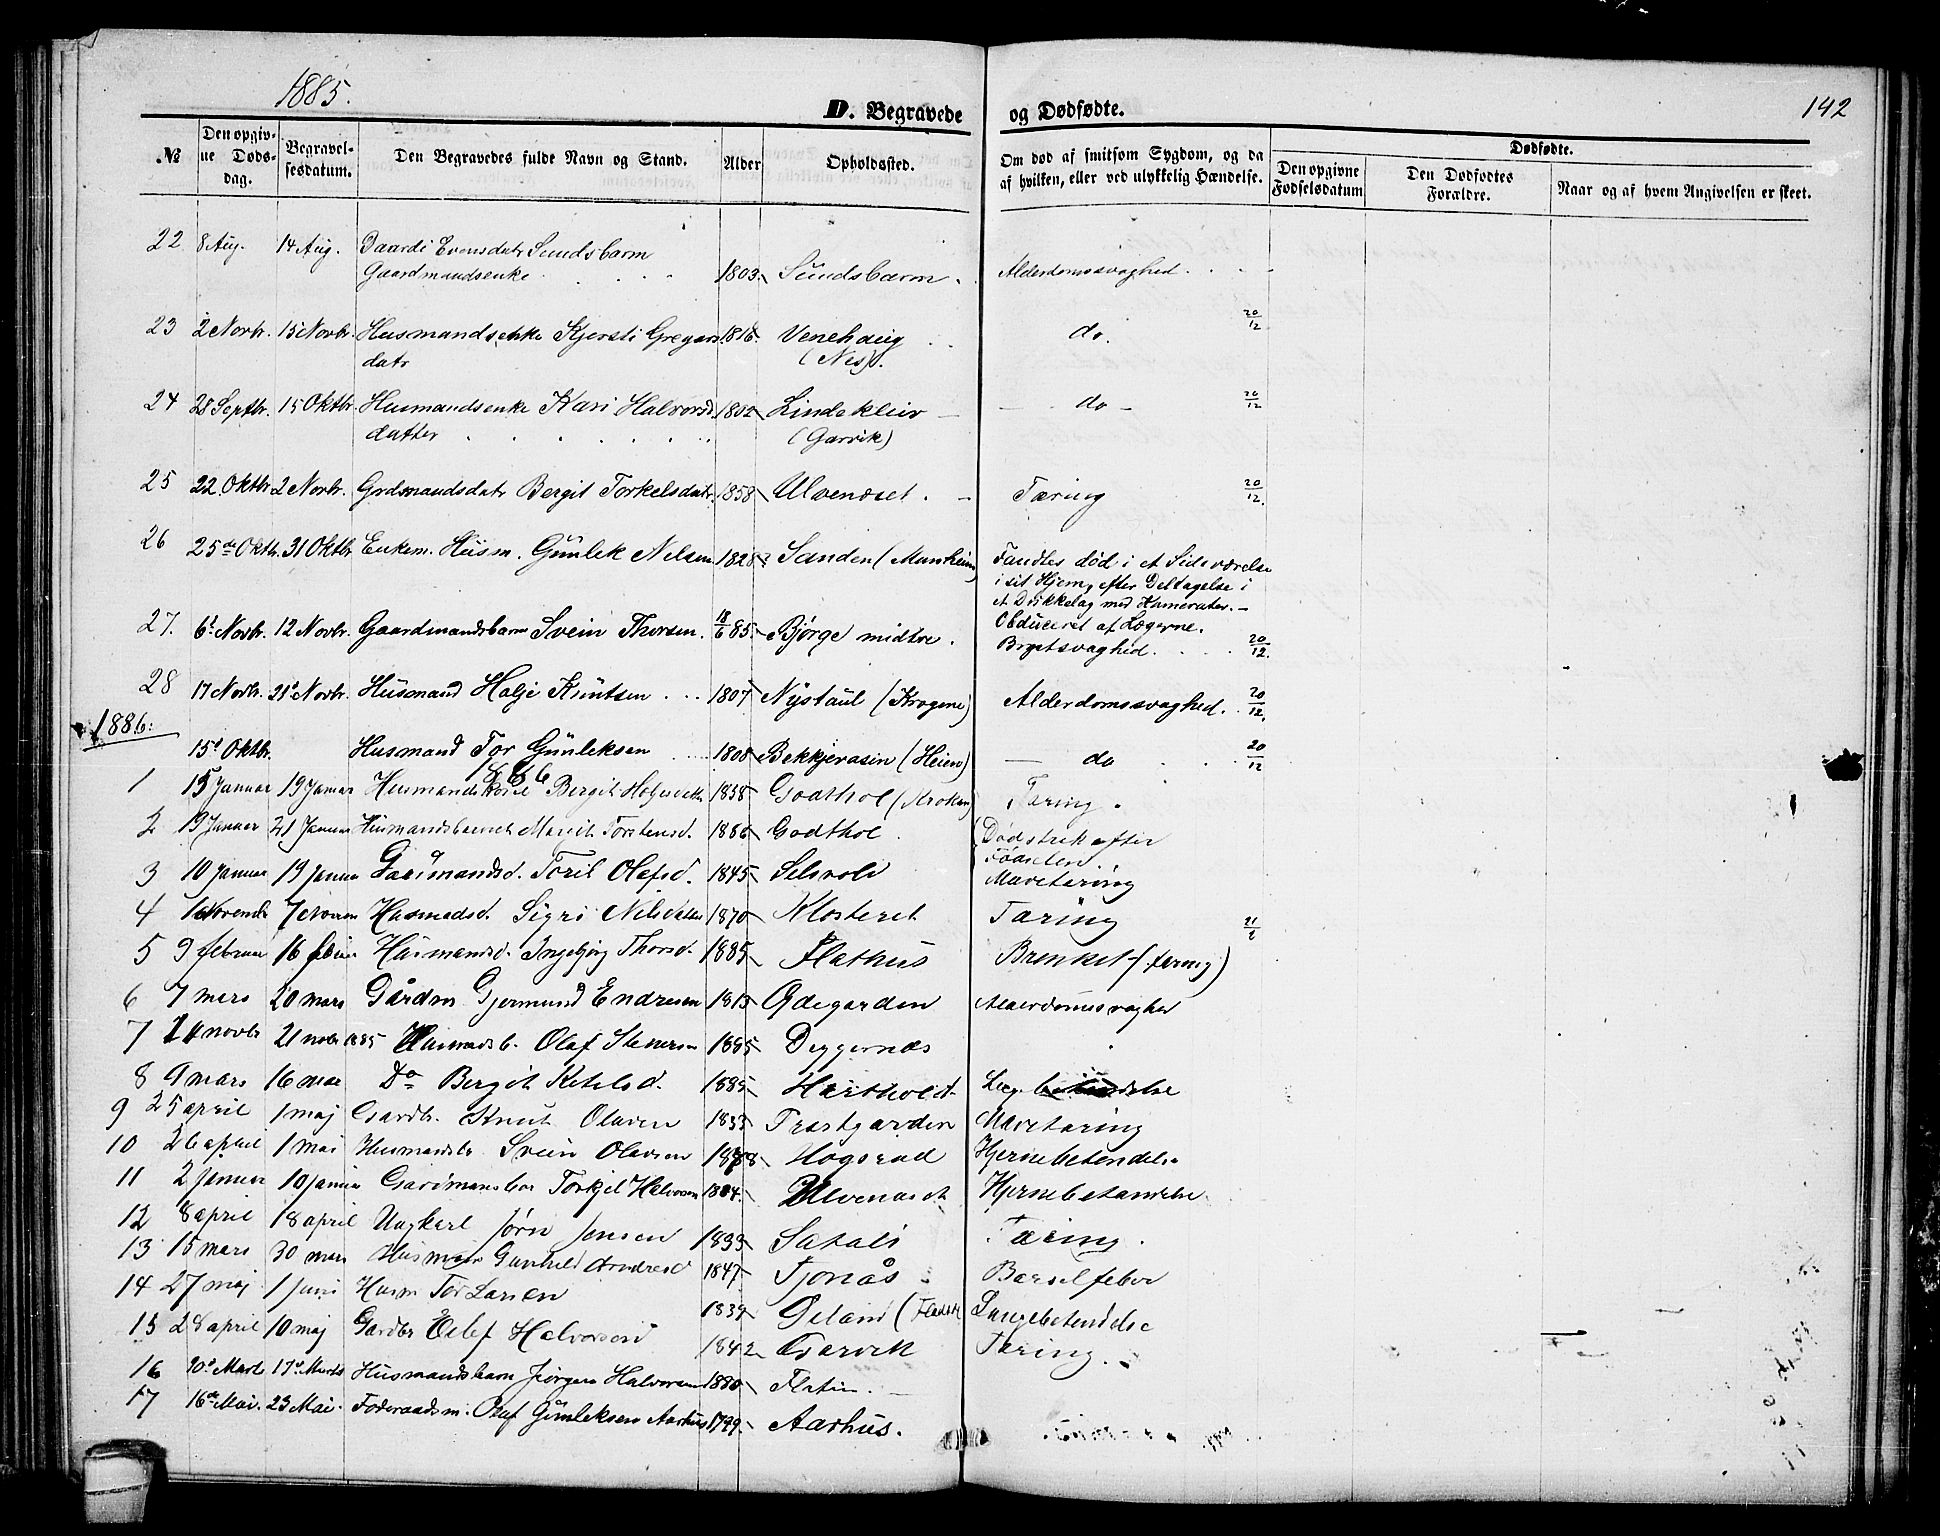 1885.
D. Begravede og Dødfødte.
142
№
Den opgivne Dødsdag.
Begravelsesdatum.
Den Begravedes fulde Navn og Stand.
Alder
Opholdssted.
Om død af smitsom Sygdom, og da af hvilken, eller ved ulykkelig Hændelse.
Dødfødte.
Den opgivne Fødselsdatum
Den Dødfødtes Forældre.
Naar og af hvem Angivelsen er skeet.
22 8 Aug. 14 Aug. Evensdatr Sundsbarm
Gaardmandsenke 1803 Sundsbarm. Alderdomssvaghed.
23 2 Novbr. 15 Novbr. Husmandsenke Kjersti Gregars 1816 Venehaug do. 20/12
datr (Nes).
24 28 Septbr. 15 Oktbr. Husmandsenke Kari Halvorsd. 1802 Lindekleiv do 20/12
datter (Garvik)
25 22 Oktbr 2 Novbr. Grdmandsdatr Bergit Torkelsdatr. 1858 Ulvenæset. Tæring 20/12.
26 25de Oktbr. 31 Oktbr Enkem. Husm. Gunlek Nelsen 1828 Sanden (Manheim) Fandtes død i et Sideværelse
i sit Hjem, efter Deltagelse i
et Drikkelag med Kamerater.
Obduceret af Lægerne.
27. 6t Novbr. 12 Novbr. Gaardmandsbarn Svein Thorsen. 18/6 85 Bjørge midtre. Brystsvaghed. 20/12.
28 17 Novbr. 21t Novbr. Husmand Holje Knutsen 1807 Nystaul (Krogene) Alderdomssvaghed. 20/12.
1886:
15t Oktbr. Husmand Tor Gunleksen 1808 Bekkjerasin (Heien) do 20/12
1886
1 15 Januar 19 Januar Husmandskone Bergit 1838 Godthol (Kroken) Tæring.
2 19 Januar 21 Januar Husmandsbarnet Margit Torstensd. 1886 Godthol. Dødstrek efter
3 10 Januar 19 Januar Gardmandsd. Toril Olafsd. 1845 Selsvold Mavetæring
4 7 Husmadsd. Sigri Nilsdatter 1870 Klosteret Tæring 21/2
5 9 februar 16 Husmandsd. Ingebjørg Thorsd. 1885 Flathus Brenket (tæring)
6 7 mars 20 mars Gårdm Gjermund Endresen 1815 Ødegarden
7 novbr 21 novbr 1885 Husmandsb. Olaf 1885 Deggernæs
8 9 mars 16 mar Do Bergit Ketelsd. 1885
9 25 april 1 maj Gardbr. Knut Olavsen 1833 Mavetæring
10 26 april 1 mai Husmandsbr Svein Olavsen Høgsrud Hjernebetendelse
11 2 Januar 10 januar Gardmansbar Torkjel Halvorsen Ulvenæset Hjernebetændelse.
12 8 april 18 april Ungkarl Jørn Jensen 1833 Satali Tæring.
13 15 mars 30 mars Gunhild 1847 Tjonås Barselfeber
14 27 maj 1 Juni Husm Tor Larsen 1839 Langebetendelse
15 28 april 10 maj Gardbr Halvorsen 1842 Garvik Tæring.
16 17de Marts Husmandsbarn Jørgen Halvorsen 1880 Flatin.
17 16de Mai. 23 Mai. Føderaadsm. Olaf Gunleksen Aarhus 1799. Aarhus.